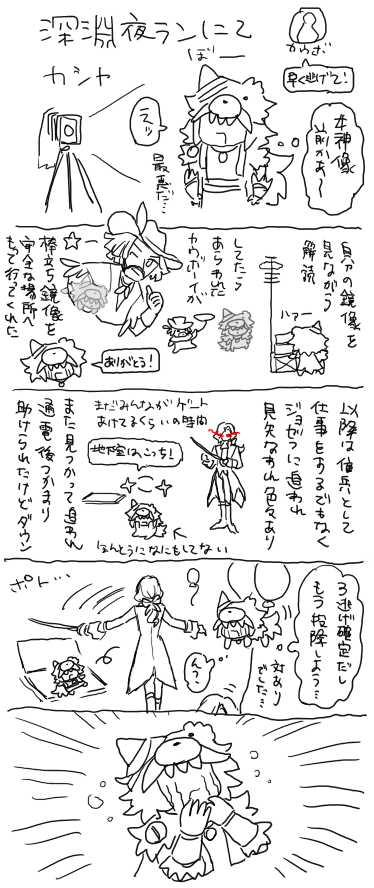 深淵夜ランにて
カウボ
早く逃げて!
ぼー
カシャ
えッ
最悪だ…
女神像
前かぁ〜
自分の鏡像を
見ながら
解読
ハァー
してたら
あらわれた
カウボーイが
☆
棒立ち鏡像を
安全な場所へ
もって行てくれた
ありがとう!
以降は傭兵として
仕事をするでもなく
ジョゼフに追われ
まだみんながゲート
あけてるくらいの時間
地下室はこっち!
なんとうになにもしてない
また見つかって追われ
通電後つかまり
助けられたけどダウン
3逃げ確定だし
もう投降しよう…
対あり
でした…
ん?
ポト…